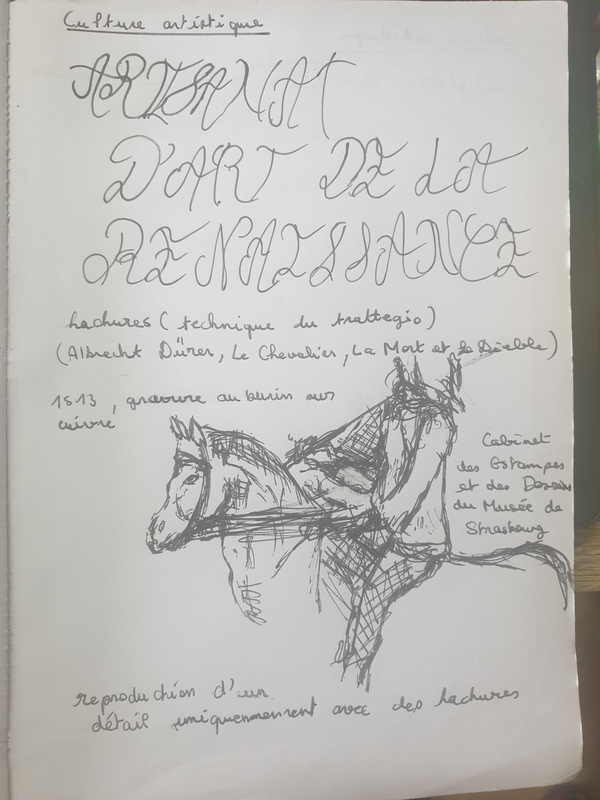 Culture artistique
ARTISANAT
D'ART DE LA
RENAISSANCE
hachures (technique du trattegio)
(Albrecht Dürer, Le Chevalier, La Mort et le Diable)
1513, gravure au burin sur
cuivre
Cabinet
des Estampes
et des Dessins
du Musée de
Strasbourg
reproduction d'un
détail uniquement avec des hachures